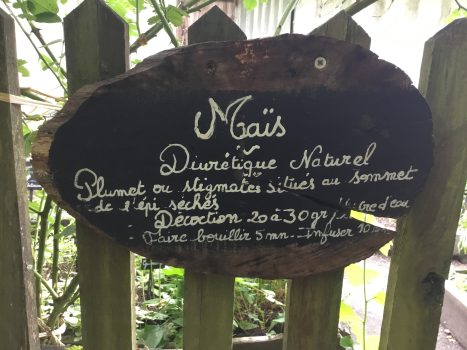 Maïs
Diurétique Naturel
Plumet ou stigmates situés au sommet
de l'épi séchés
Décoction 20 à 30 gr / litre d'eau
Faire bouillir 5 mn - Infuser 10